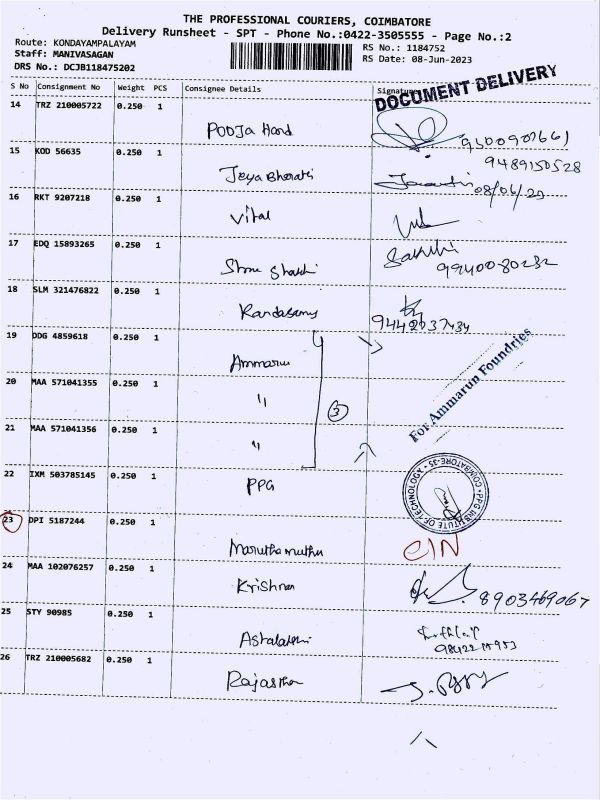 THE PROFESSIONAL COURIERS, COIMBATORE
Delivery Runsheet - SPT - Phone No.:0422-3505555 - Page No.:2
Route: KONDAYAMPALAYAM
Staff: MANIVASAGAN
DRS No.: DCJB118475202
RS No.: 1184752
RS Date: 08-Jun-2023
S No Consignment No Weight PCS Consignee Details Signature
DOCUMENT DELIVERY
14 TRZ 210005722 0.250 1
Pooja Hand
15 KOD 56635 0.250 1
9489150528
Jeya Bharathi
08/06/23
16 RKT 9207218 0.250 1
Vital
17 EDQ 15893265 0.250 1
Sakthi
Shree Shakthi 99400-80232
18 SLM 321476822 0.250 1
Kandasamy 9442037434
19 DDG 4859618 0.250 1
Ammarun
For Ammarun Foundries
20 MAA 571041355 0.250 1
"
3
21 MAA 571041356 0.250 1
"
22 IXM 503785145 0.250 1
PPG
PPG INSTITUTE OF TECHNOLOGY COIMBATORE-35
23 DPI 5187244 0.250 1
Marutha muthu CIN
24 MAA 102076257 0.250 1
Krishnan 8903469067
25 STY 90985 0.250 1
26 TRZ 210005682 0.250 1